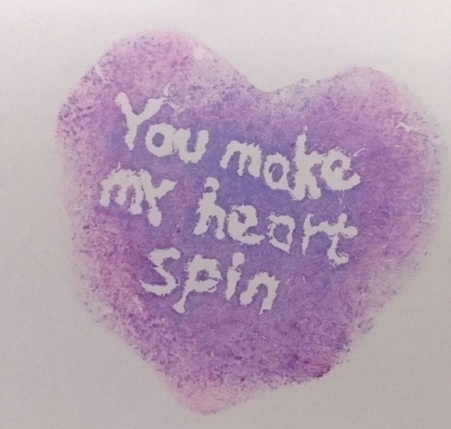 You make
my heart
spin